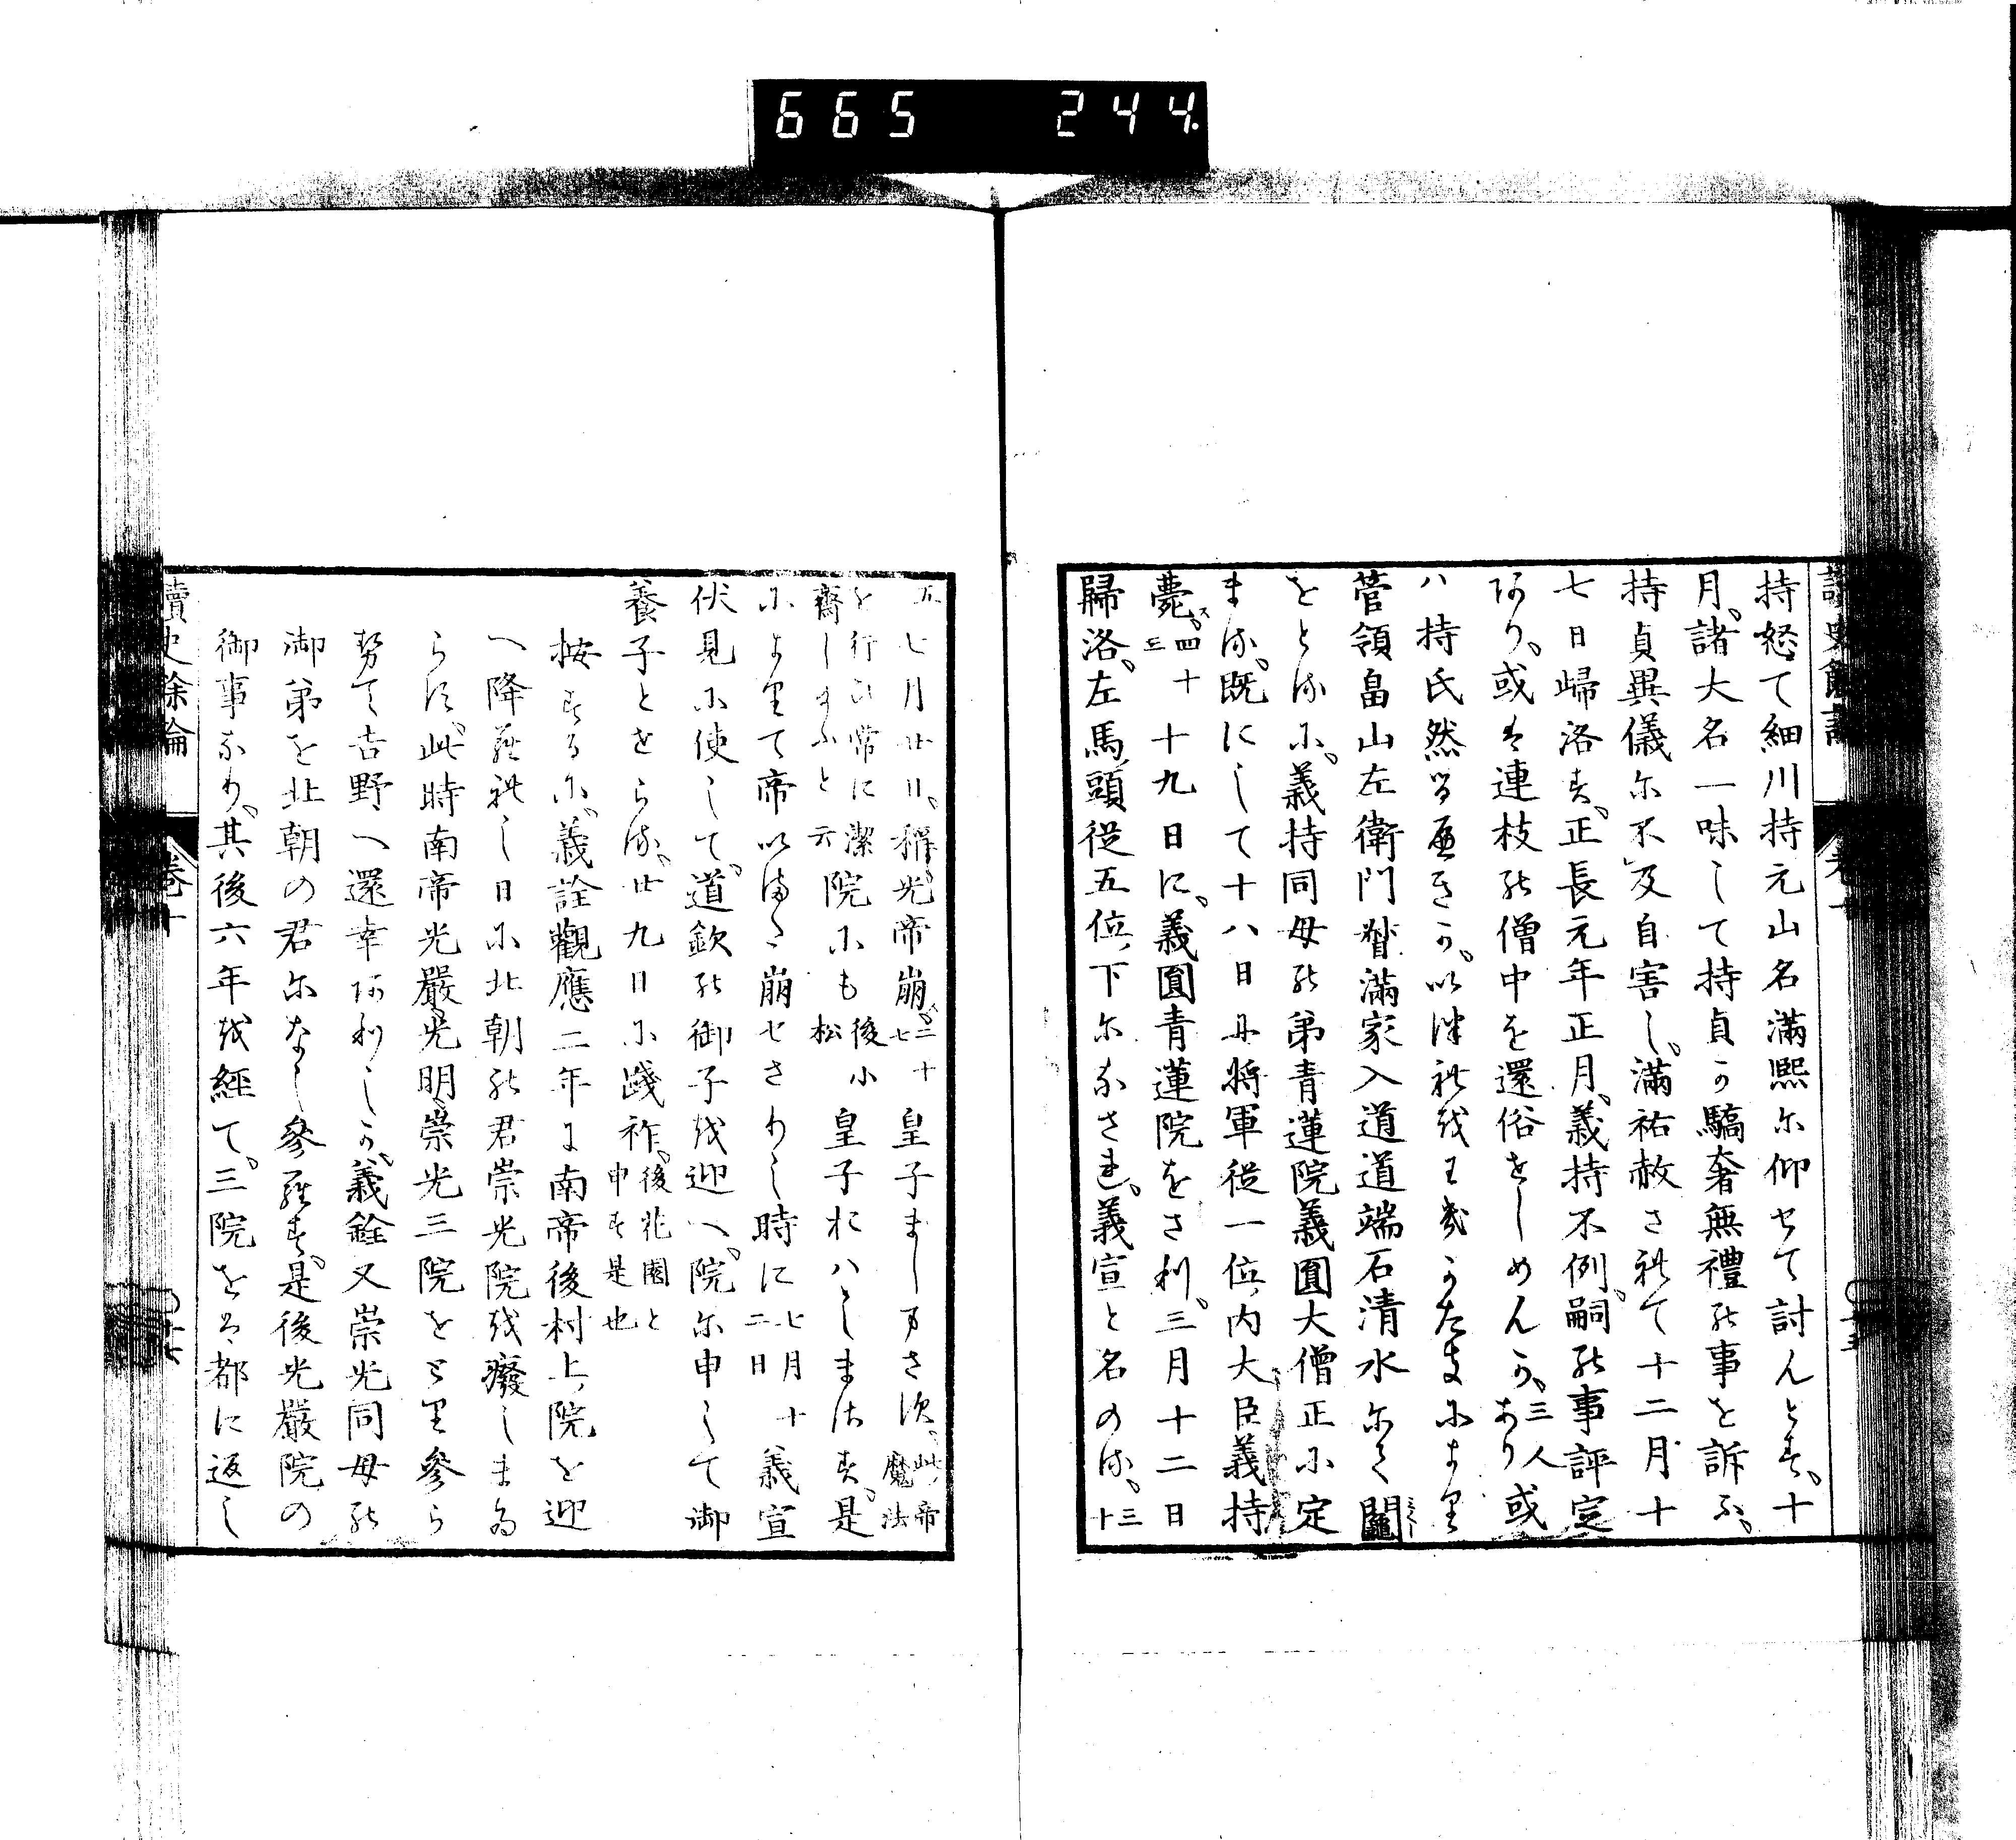 665 244
持怒て細川持元山名滿熙尓仰セて討んとす、十
月、諸大名一味して持貞可驕奢無禮能事を訴ふ、
持貞異儀尓不及自害し、滿祐赦さ礼て十二月十
七日歸洛す、正長元年正月、義持不例、嗣能事評定
阿り、或ハ連枝能僧中を還俗せしめん可、三人あり或
ハ持氏然る尓
管領畠山左衛門督滿家入道道端石清水尓て鬮
をとる尓、義持同母能弟青蓮院義圓大僧正尓定
まる、既にして十八日尓將軍從一位、内大臣義持
薨ス、四十三十九日に、義圓青蓮院をさ利、三月十二日
歸洛、左馬頭從五位下尓なされ、義宣と名のる、三十
五七月廿日、稱光帝崩ズ、二十七皇子ましまさ須、此帝魔法
を行ひ常に潔齋しまふと云院にも後小松皇子おハしまさす、是
によりて帝いまた崩せさりし時に七月十二日義宣
伏見に使して、道欽能御子越迎へ、院尓申して御
養子とせらる、廿九日に踐祚、後花園と申す是也
按するに、義詮觀應二年に南帝後村上院を迎
へ降參礼し日に北朝能君崇光院越癈しまゐ
らす、此時南帝光嚴、光明、崇光三院をとり參ら
勢て吉野へ還幸阿利し可、義銓又崇光同母能
御弟を北朝の君尓なし參らす、是後光嚴院の
御事なり、其後六年越經て、三院をハ都に返し
讀史餘論 卷十